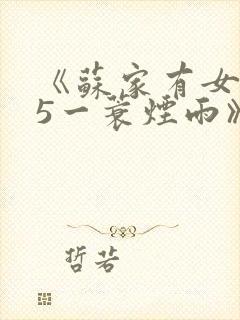 《蘇家有女
5一蓑煙雨》
哲若